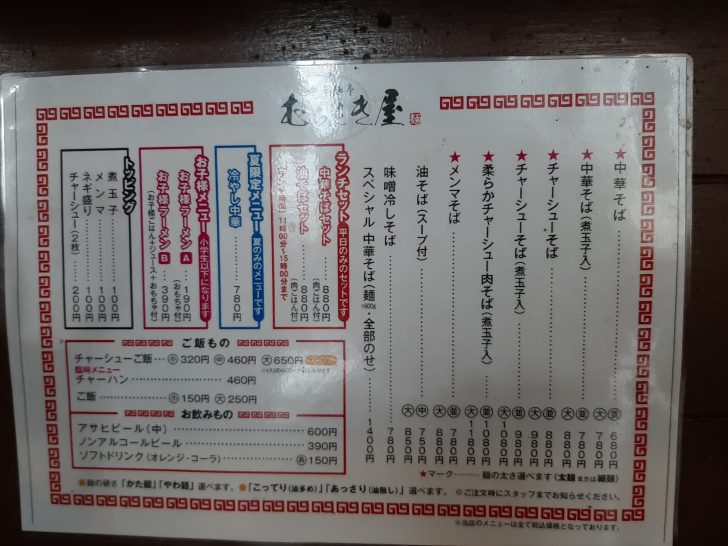 むらさき屋 麺
★中華そば……並 680円
大 780円
★中華そば(煮玉子入)……並 780円
大 880円
★チャーシューそば……並 880円
大 980円
★チャーシューそば(煮玉子入)……並 980円
大 1080円
★柔らかチャーシュー肉そば(煮玉子入)……並 1080円
大 1180円
★メンマそば……並 780円
大 880円
油そば(スープ付)……中 750円
大 850円
味噌冷しそば
スペシャル 中華そば(麺600g・全部のせ)……1400円
★マーク……麺の太さ選べます(太麺または細麺)
ランチセット 平日のみのセットです
中華そばセット……880円
(肉ごはん付)
油そばセット……880円
(肉ごはん付)
11時00分〜15時00分まで
夏限定メニュー 夏のみのメニューです
冷やし中華……780円
お子様メニュー 小学生以下になります
お子様ラーメンA……190円
(おもちゃ付)
お子様ラーメンB……390円
(お子様ごはん+ジュース+おもちゃ付)
トッピング
煮玉子……100円
メンマ……100円
ネギ盛り……100円
チャーシュー(2枚)……200円
ご飯もの
チャーシューご飯…小320円 中460円 大650円
臨時メニュー
チャーハン……460円
ご飯……小150円 大250円
お飲みもの
アサヒビール(中)……600円
ノンアルコールビール……390円
ソフトドリンク(オレンジ・コーラ)……各150円
●麺の硬さ「かた麺」「やわ麺」選べます。●「こってり(油多め)」「あっさり(油無し)」選べます。 ※ご注文時にスタッフまでお知らせください。
※当店のメニューは全て税込価格となっております。